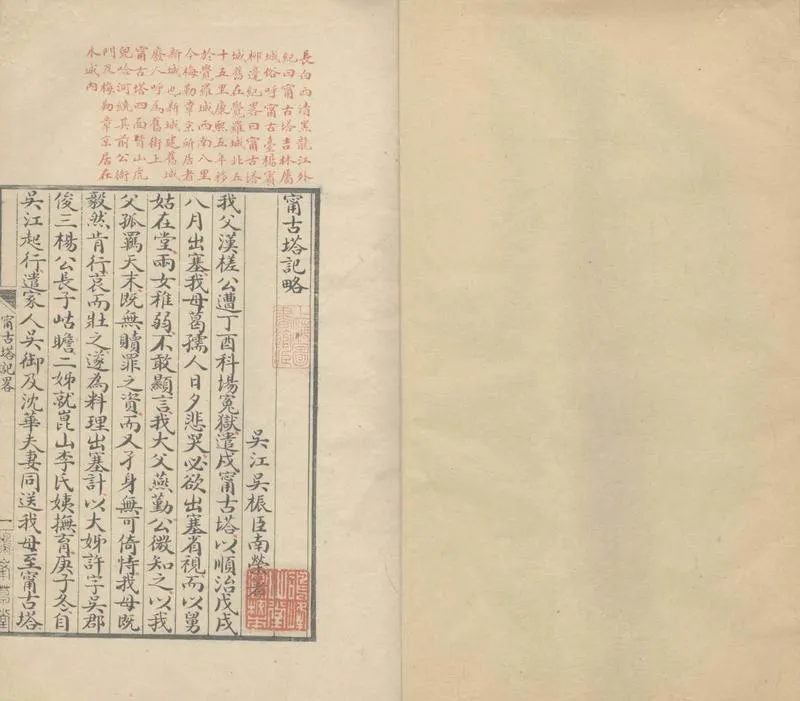 長白西清黑龍江外
紀曰甯古塔吉林屬
城俗呼甯古臺楊賓
柳邊紀畧曰甯古塔
城舊在覺羅城北五
十五里康熙五年移
於覺羅城西南八里
今梅勒章京所居者
新城也新城建舊城
廢人呼為舊街上
甯古塔四面皆山虎
兒哈河繞其前公衙
門及梅勒章京居在
木城內
甯古塔記略
吳江吳振臣南榮著
我父漢槎公遭丁酉科場冤獄遣戍甯古塔以順治戊戌
八月出塞我母葛孺人日夕悲哭必欲出塞省視而以舅
姑在堂兩女稚弱不敢顯言我大父燕勤公微知之以我
父孤羈天末既無贖罪之資而又孑身無可倚恃我母既
毅然肯行哀而壯之遂為料理出塞計以大姊許字吳郡
俊三楊公長子岵瞻二姊就崑山李氏姨撫育庚子冬自
吳江起行遣家人吳御及沈華夫妻同送我母至甯古塔
甯古塔記畧
一